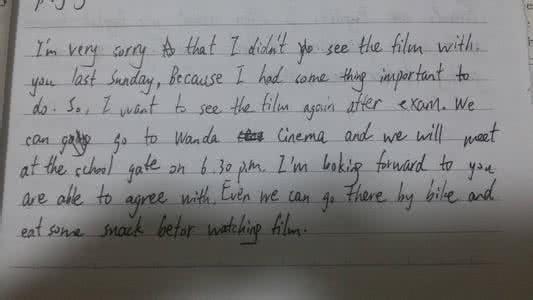 I'm very sorry that I didn't see the film with
you last Sunday, Because I had some thing important to
do. So, I want to see the film again after exam. We
can go to Wanda Cinema and we will meet
at the school gate on 6.30 p.m. I'm looking forward to you
are able to agree with. Even we can go there by bike and
eat some snack befor watching film.